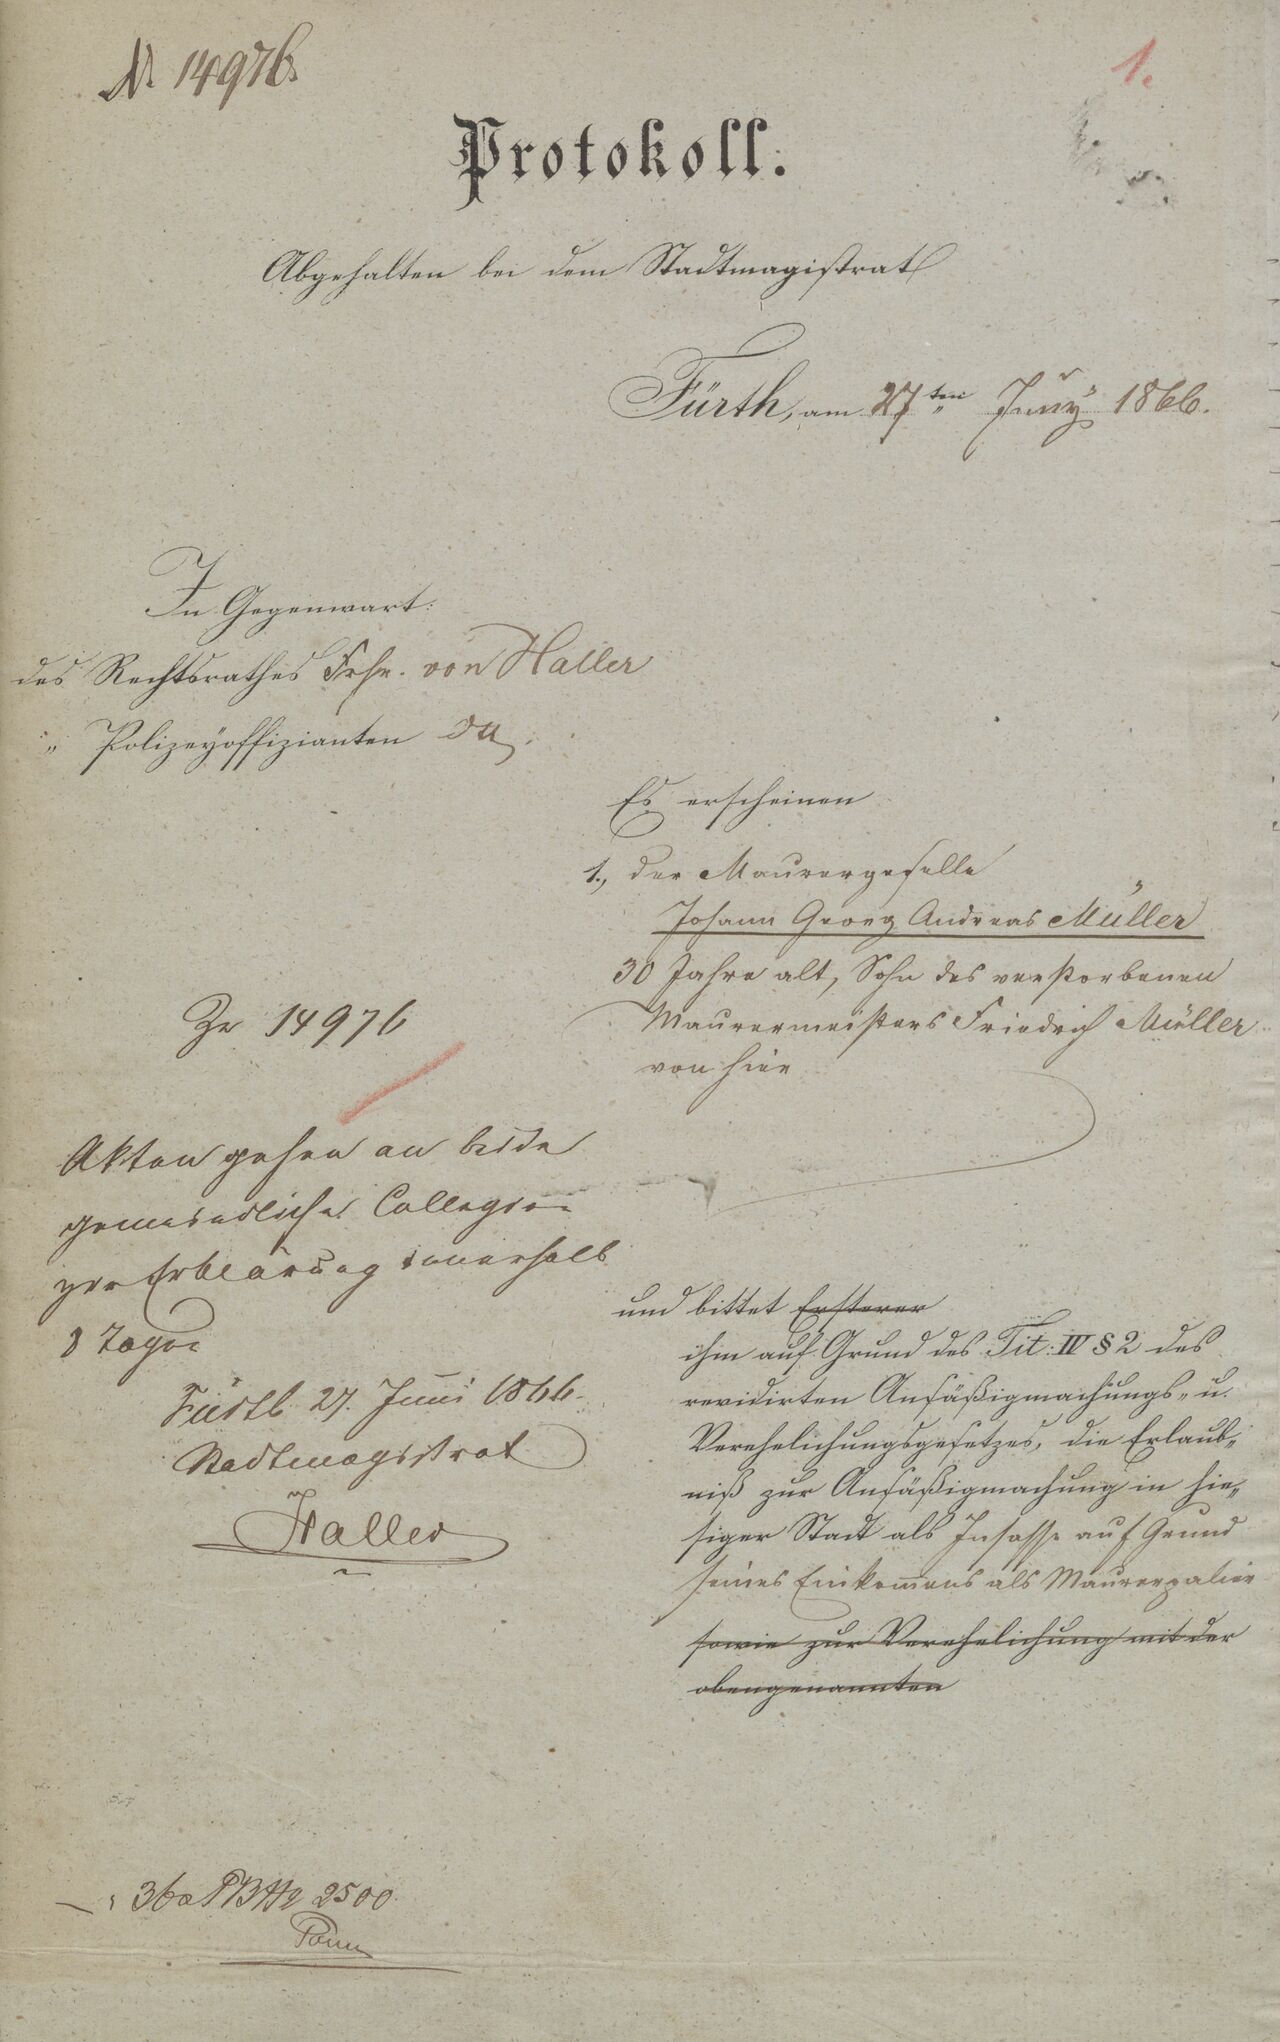 № 14976.
1.
Protokoll.
Abgehalten bei dem Stadtmagistrat
Fürth, am 27ten Juny 1866.
In Gegenwart:
des Rechtsrathes Frhr. von Haller
„ Polizeyoffizianten
Es erscheinen
1., der Maurergeselle
Johann Georg Andreas Müller
30 Jahre alt, Sohn des verstorbenen
Maurermeisters Friedrich Müller
von hier
Zr 14976
Akten gehen an beide
gemeindliche Collegien
zur Erklärung innerhalb
8 Tagen
Fürth 27. Juni 1866.
Stadtmagistrat
Haller
und bittet Ersterer
ihm auf Grund des Tit: IV § 2 des
revidirten Ansäßigmachungs- u.
Verehelichungsgesetzes, die Erlaub-
niß zur Ansäßigmachung in hie-
siger Stadt als Insasse auf Grund
seines Einkomens als Maurerpalier
sowie zur Verehelichung mit der
obengenannten
2500.